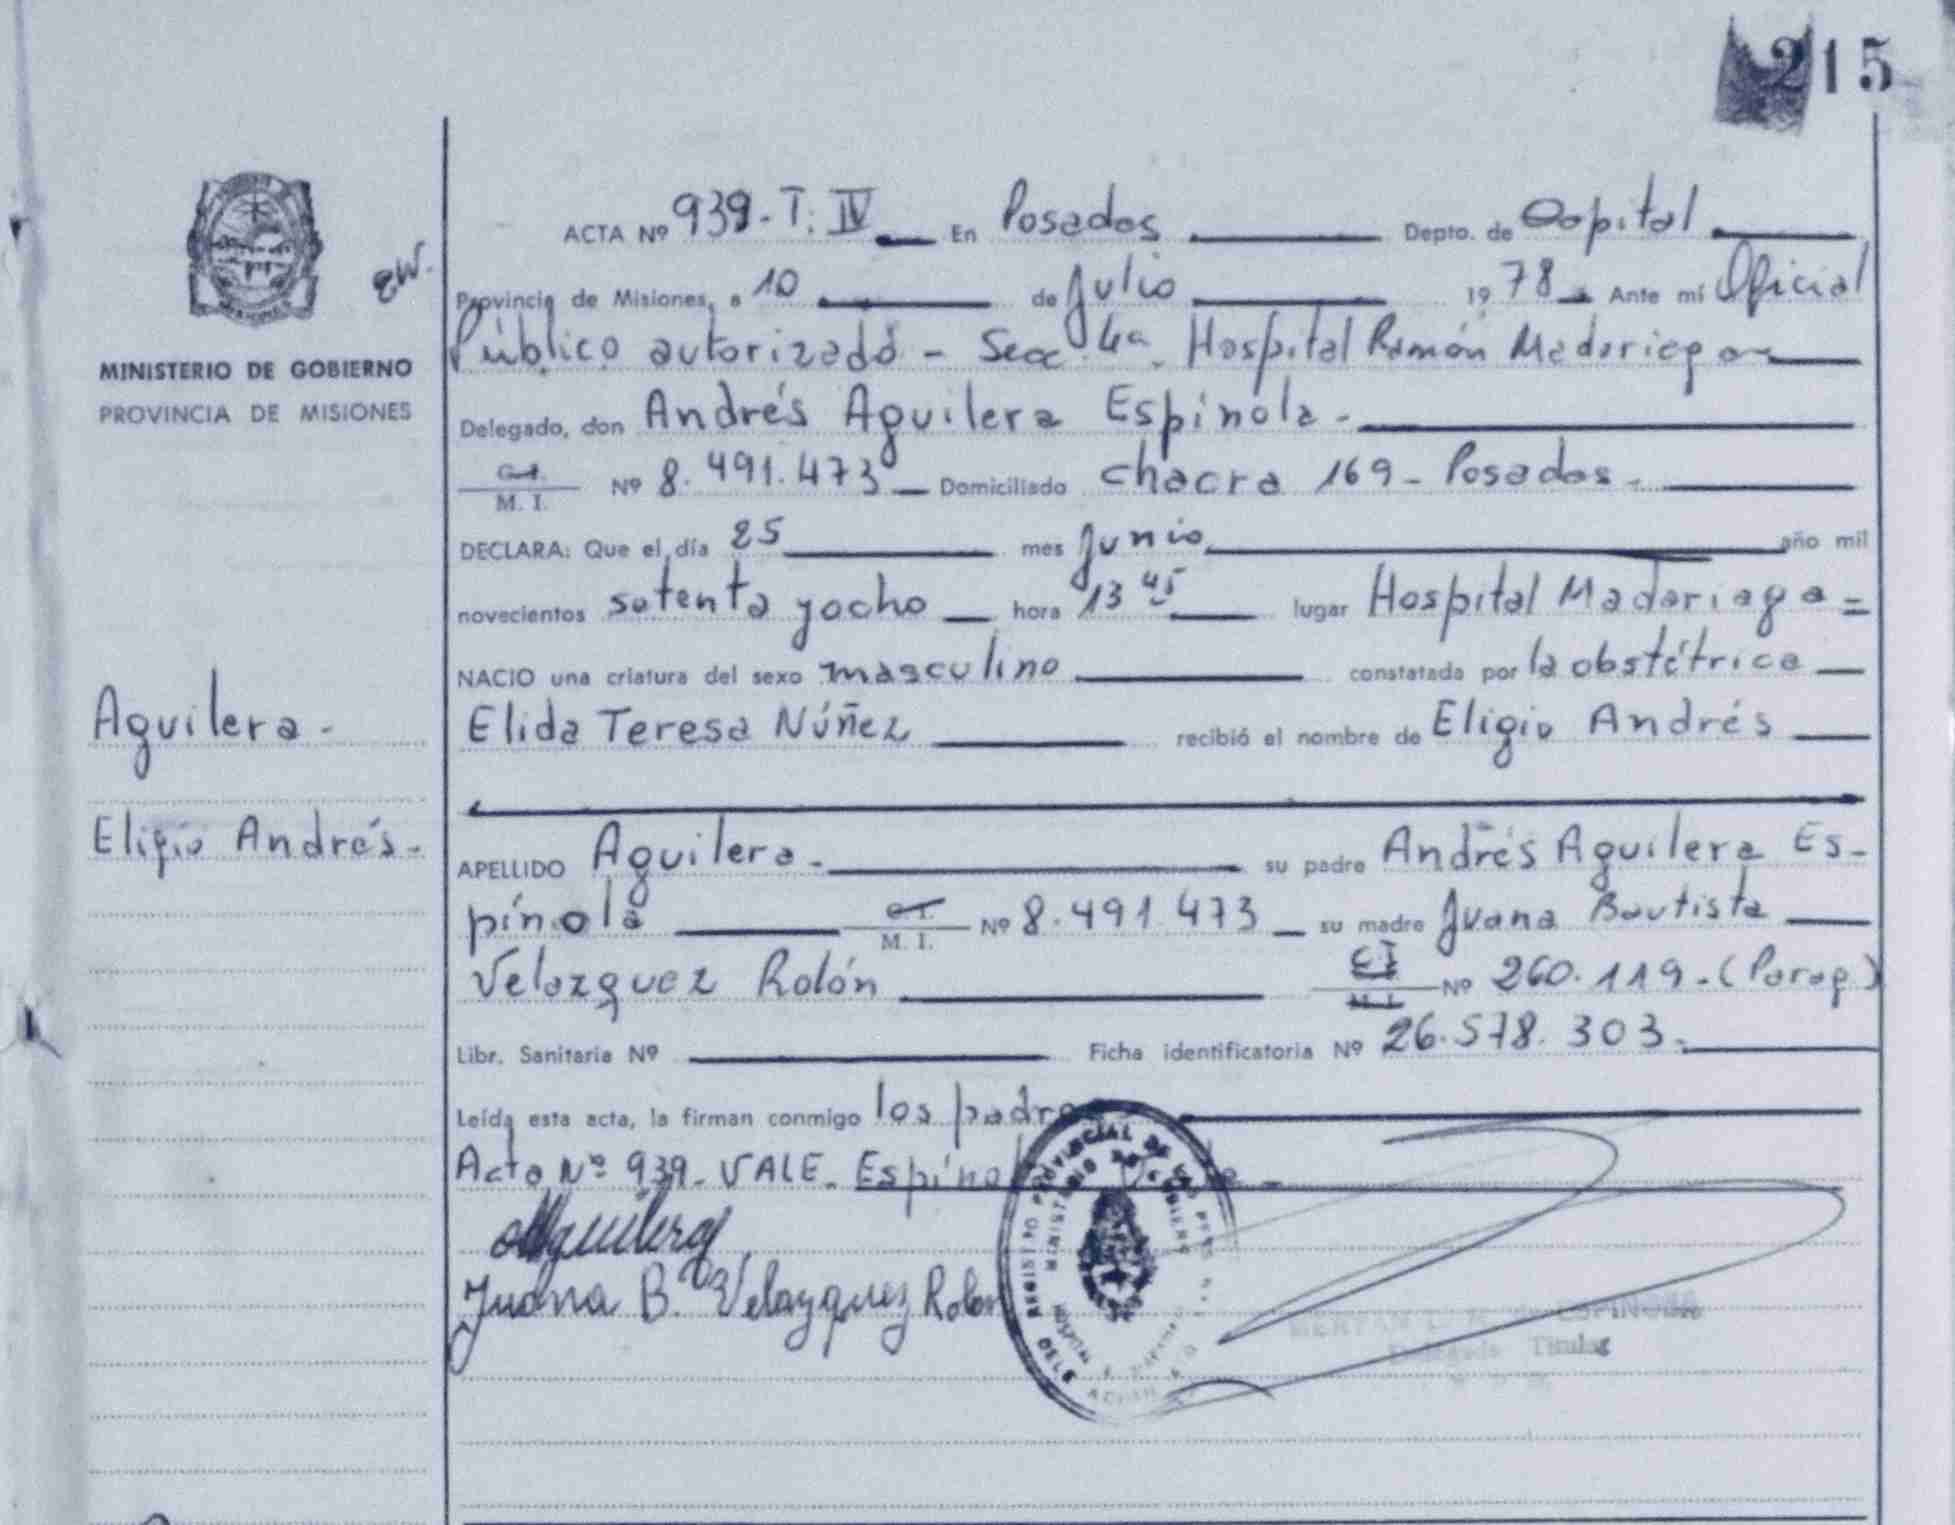 215
ACTA Nº 939 - T. IV En Posadas Depto. de Capital
EW.
Provincia de Misiones, a 10 de Julio 1978 Ante mí Oficial
Público autorizado - Secc. 4a. Hospital Ramón Madariaga
MINISTERIO DE GOBIERNO
PROVINCIA DE MISIONES
Delegado, don Andrés Aguilera Espínola.-
C. I. M. I. Nº 8.491.473 Domiciliado chacra 169 - Posadas.
DECLARA: Que el día 25 mes Junio año mil
novecientos setenta yocho hora 13 45 lugar Hospital Madariaga =
NACIO una criatura del sexo masculino constatada por la obstétrica
Aguilera -
Elida Teresa Núñez recibió el nombre de Eligio Andrés
Eligio Andrés.
APELLIDO Aguilera.- su padre Andrés Aguilera Es-
pínola C. I. M. I. Nº 8.491.473 su madre Juana Bautista
Velazquez Rolón CI M. I. Nº 260.119.- (Parag.)
Libr. Sanitaria Nº Ficha identificatoria Nº 26.578.303.
Leída esta acta, la firman conmigo los padres
Acta Nº 939 - VALE.
Aguilera
Juana B. Velazquez Rolon
REGISTRO PROVINCIAL DE LAS PERSONAS
MINISTERIO DE GOBIERNO
ESPINOSA
Delegada Titular